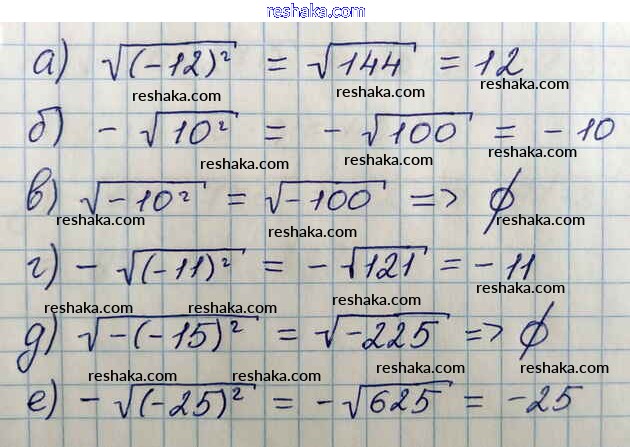 reshaka.com
а) √(-12)² = √144 = 12
reshaka.com reshaka.com reshaka.com
б) - √10² = - √100 = - 10
reshaka.com reshaka.com reshaka.com
в) √-10² = √-100 => ∅
reshaka.com reshaka.com reshaka.com
г) - √(-11)² = - √121 = - 11
reshaka.com reshaka.com reshaka.com reshaka.com
д) √-(-15)² = √-225 => ∅
reshaka.com reshaka.com reshaka.com reshaka.com
е) - √(-25)² = - √625 = -25